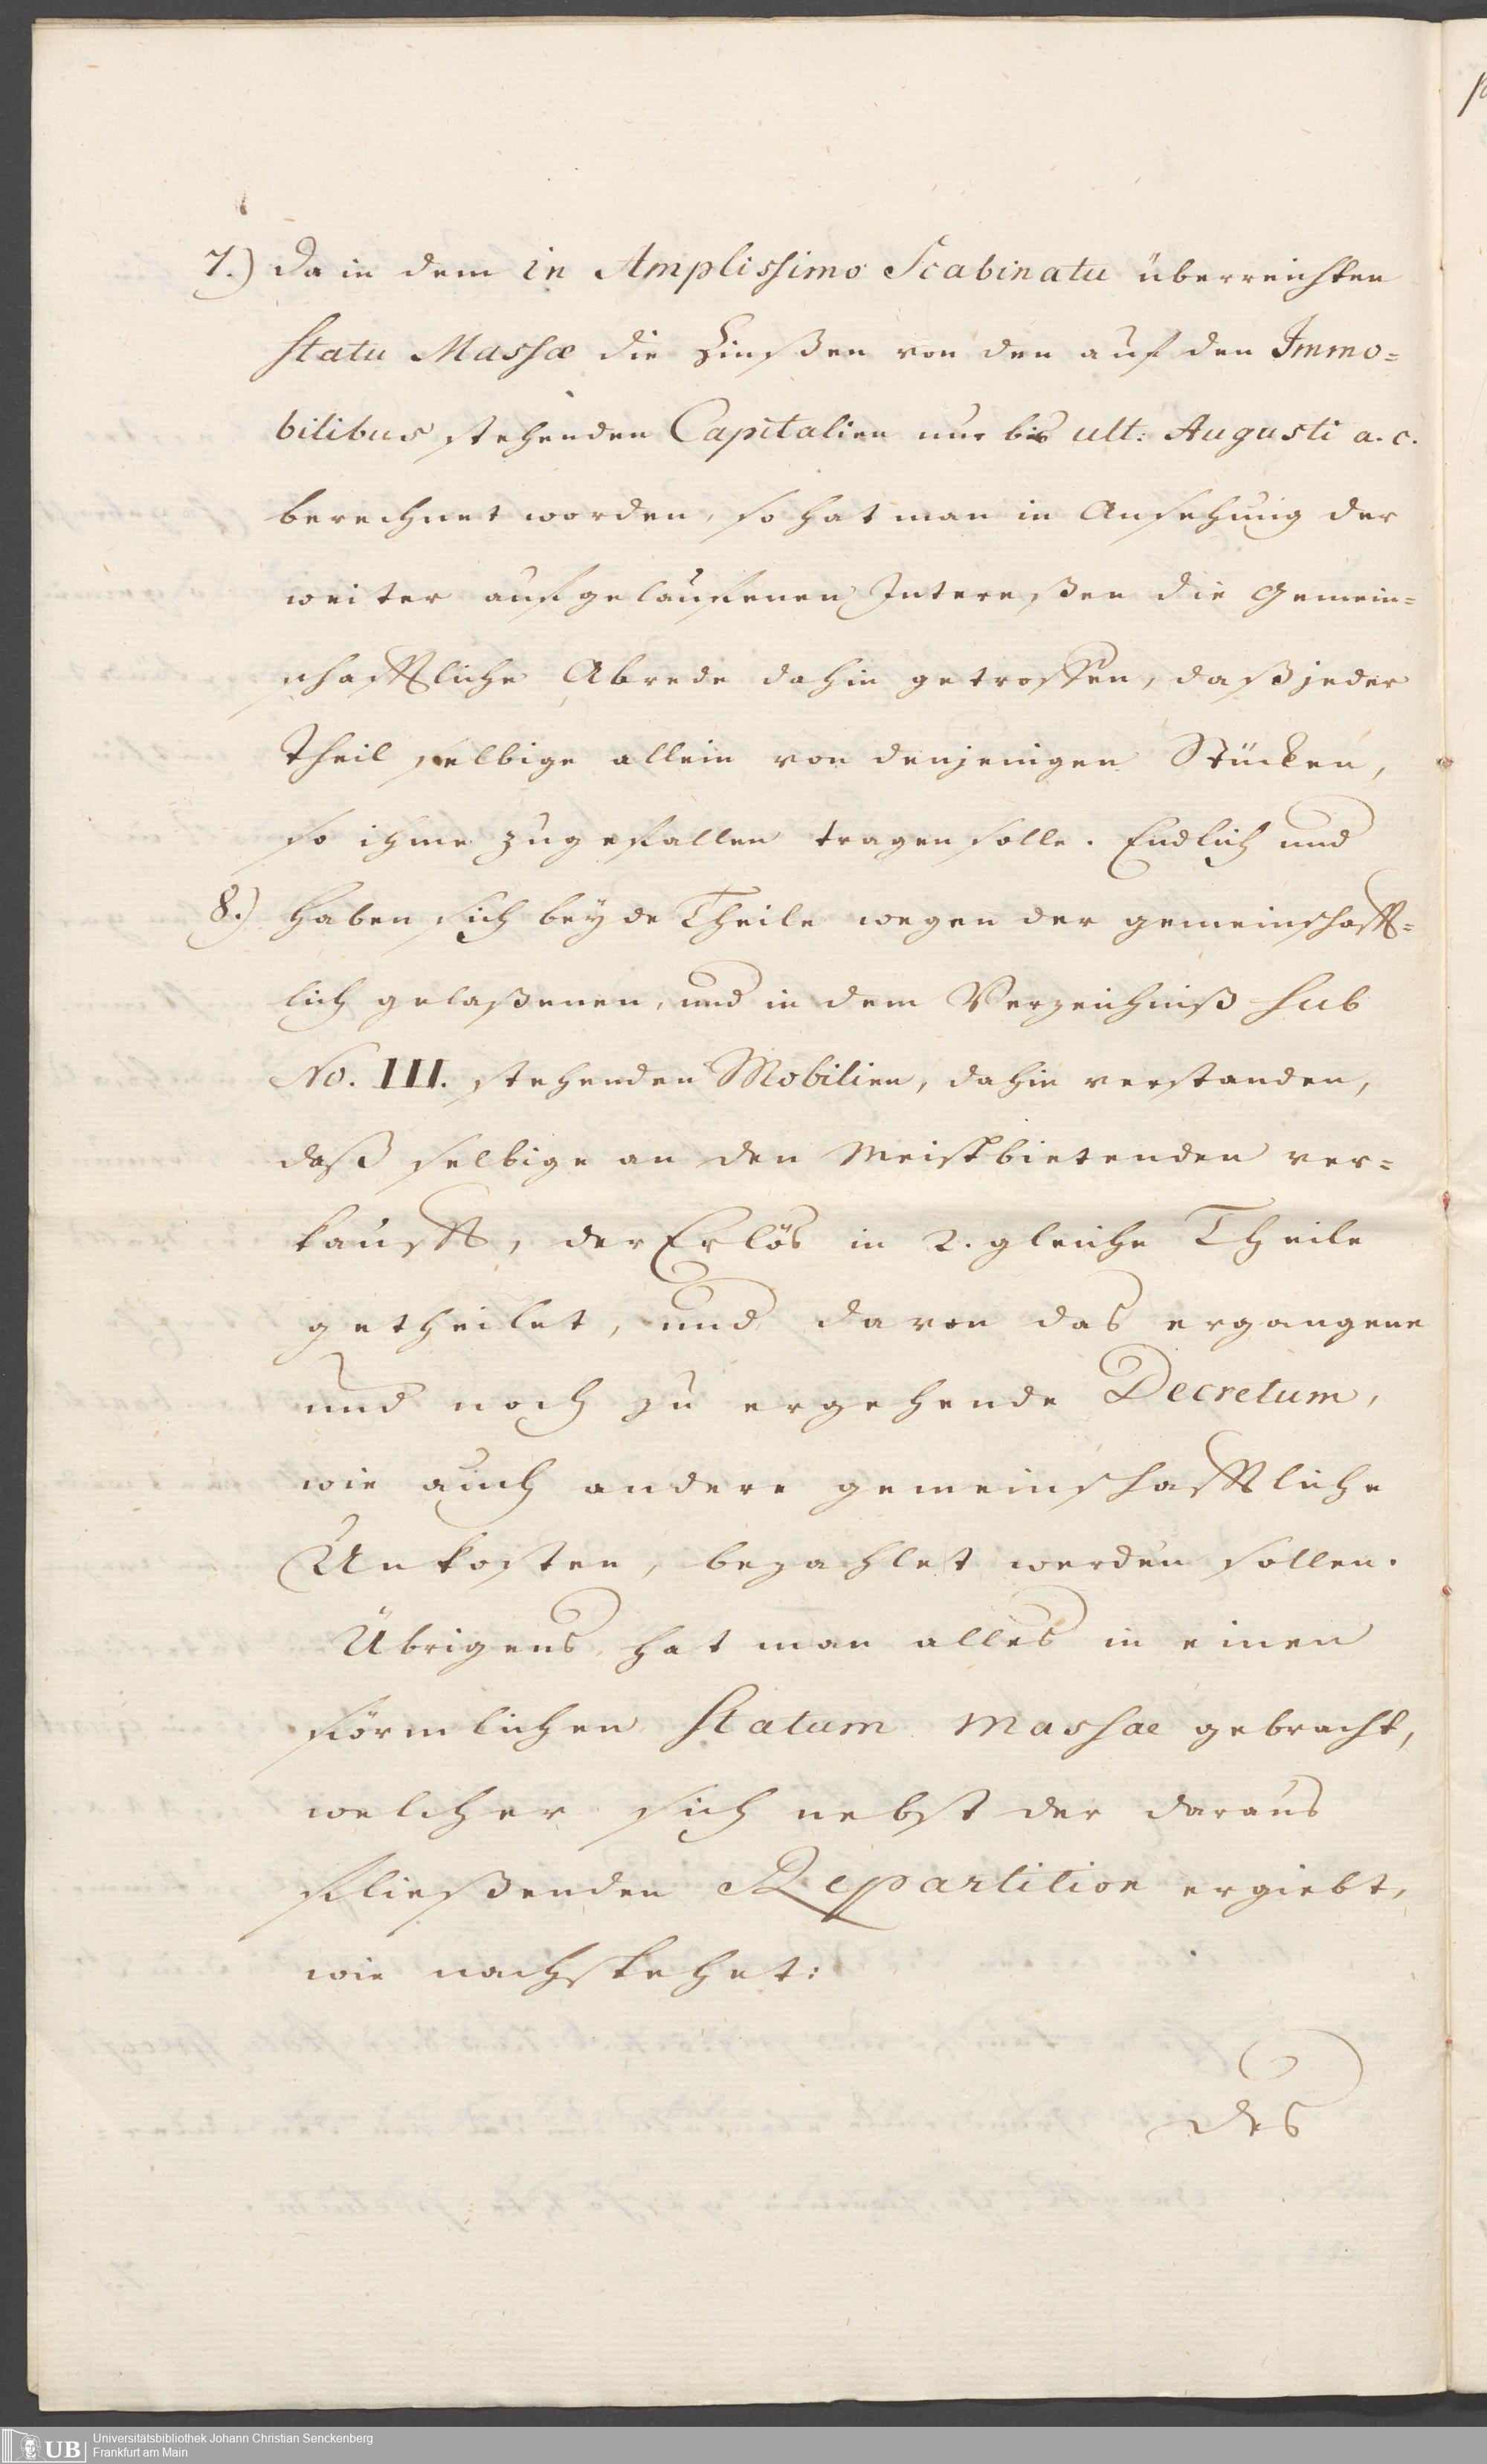 7.) da in dem in Amplissimo Scabinatu überreichten
statu Massæ die Zinßen von den auf den Immo=
bilibus stehenden Capitalien nur bis ult: Augusti a. c.
berechnet worden, so hat man in Ansehung der
weiter aufgelaufenen Intereßen die Gemein=
schafftliche Abrede dahin getroffen, daß jeder
Theil selbige allein von denjenigen Stücken,
so ihme zugefallen tragen solle. Endlich und
8.) haben sich beyde Theile wegen der gemeinschafft=
lich gelaßenen, und in dem Verzeichniß sub
No. III. stehenden Mobilien, dahin verstanden,
daß selbige an den Meistbietenden ver=
kaufft, der Erlös in 2. gleiche Theile
getheilet, und davon das ergangene
und noch zu ergehende Decretum,
wie auch andere gemeinschafftliche
Unkosten, bezahlet werden sollen.
Übrigens hat man alles in einen
förmlichen Statum Massae gebracht,
welcher sich nebst der daraus
fließenden Repartition ergiebt,
wie nachstehet:
des
UB
Universitätsbibliothek Johann Christian Senckenberg
Frankfurt am Main